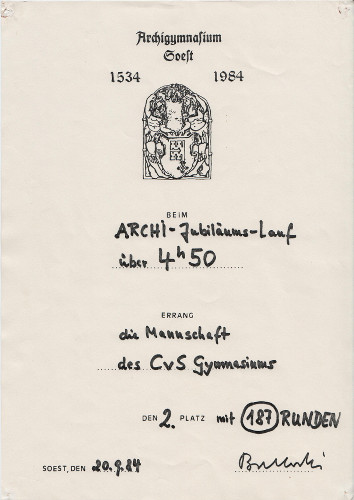 Archigymnasium
Soest
1534 1984
BEIM
ARCHI-Jubiläums-Lauf
über 4h 50
ERRANG
die Mannschaft
des CvS Gymnasiums
DEN 2. PLATZ mit 187 RUNDEN
SOEST, DEN 20.9.84